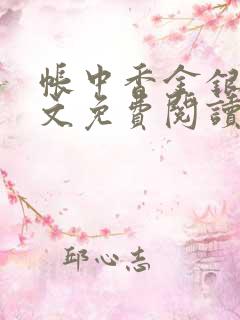 帳中香金銀
文免費閱讀
邱心志